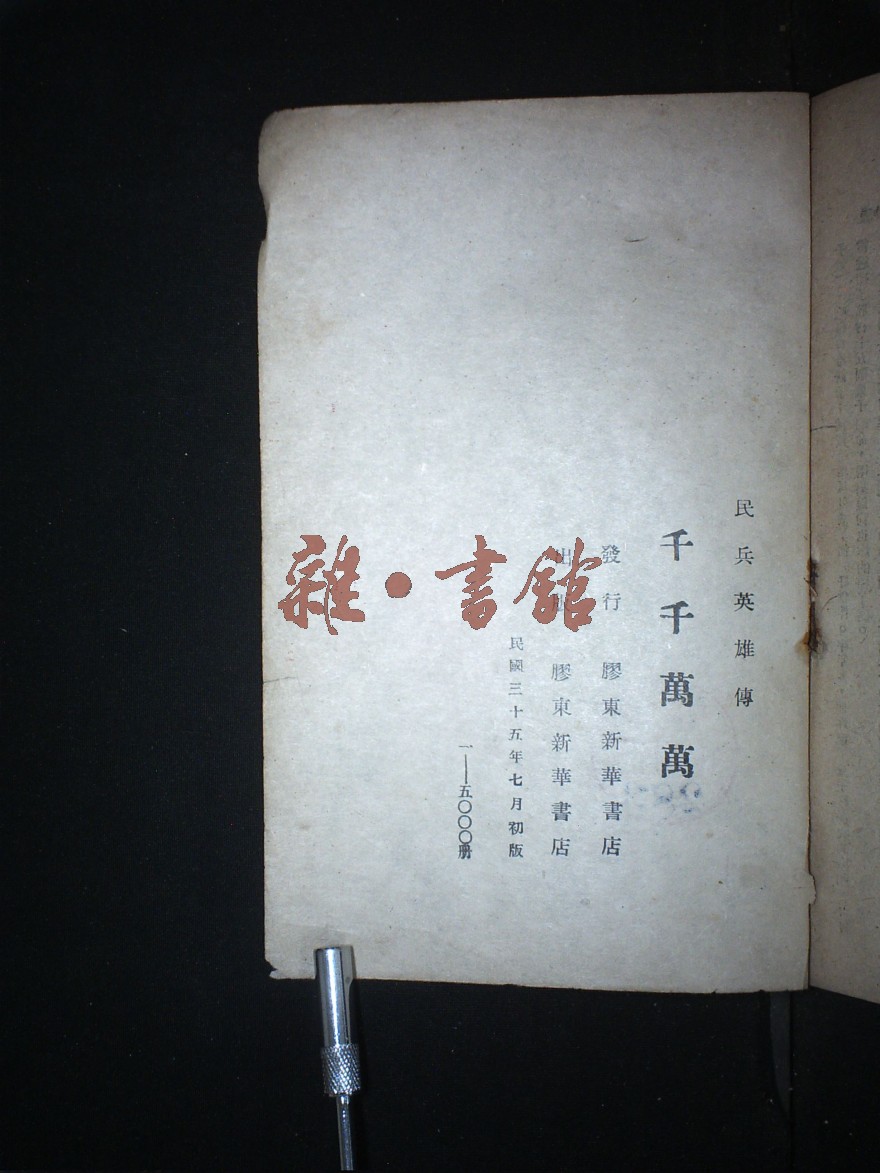 民兵英雄傳
千千萬萬
發行 膠東新華書店
出版 膠東新華書店
民國三十五年七月初版
一——五〇〇〇册
雜·書館